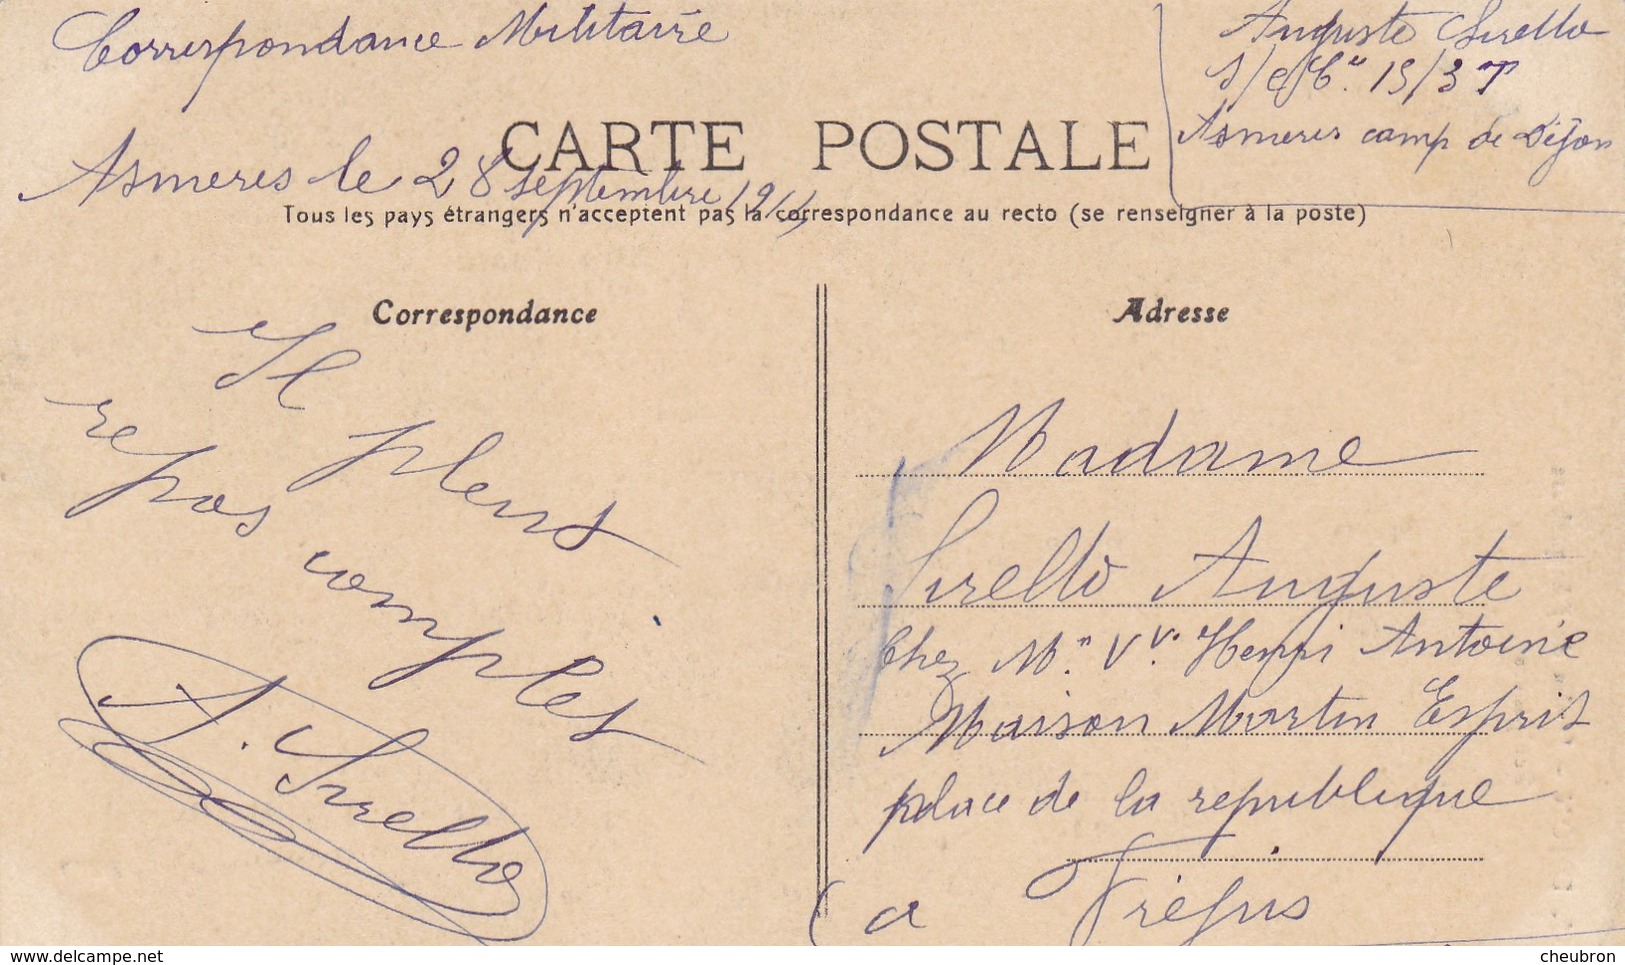 Correspondance Militaire
Auguste Sirello
s/c/bu. 15/3 T
Asmeres camp de Dijon
CARTE POSTALE
Asmeres le 28 septembre 1914
Tous les pays étrangers n'acceptent pas la correspondance au recto (se renseigner à la poste)
Correspondance
Il pleut
repos complet
A. Sirello
Adresse
Madame
Sirello Auguste
Chez Mn. Vv. Henri Antoine
Maison Martin Esprit
place de la republique
a Fréjus
www.delcampe.net
cheubron